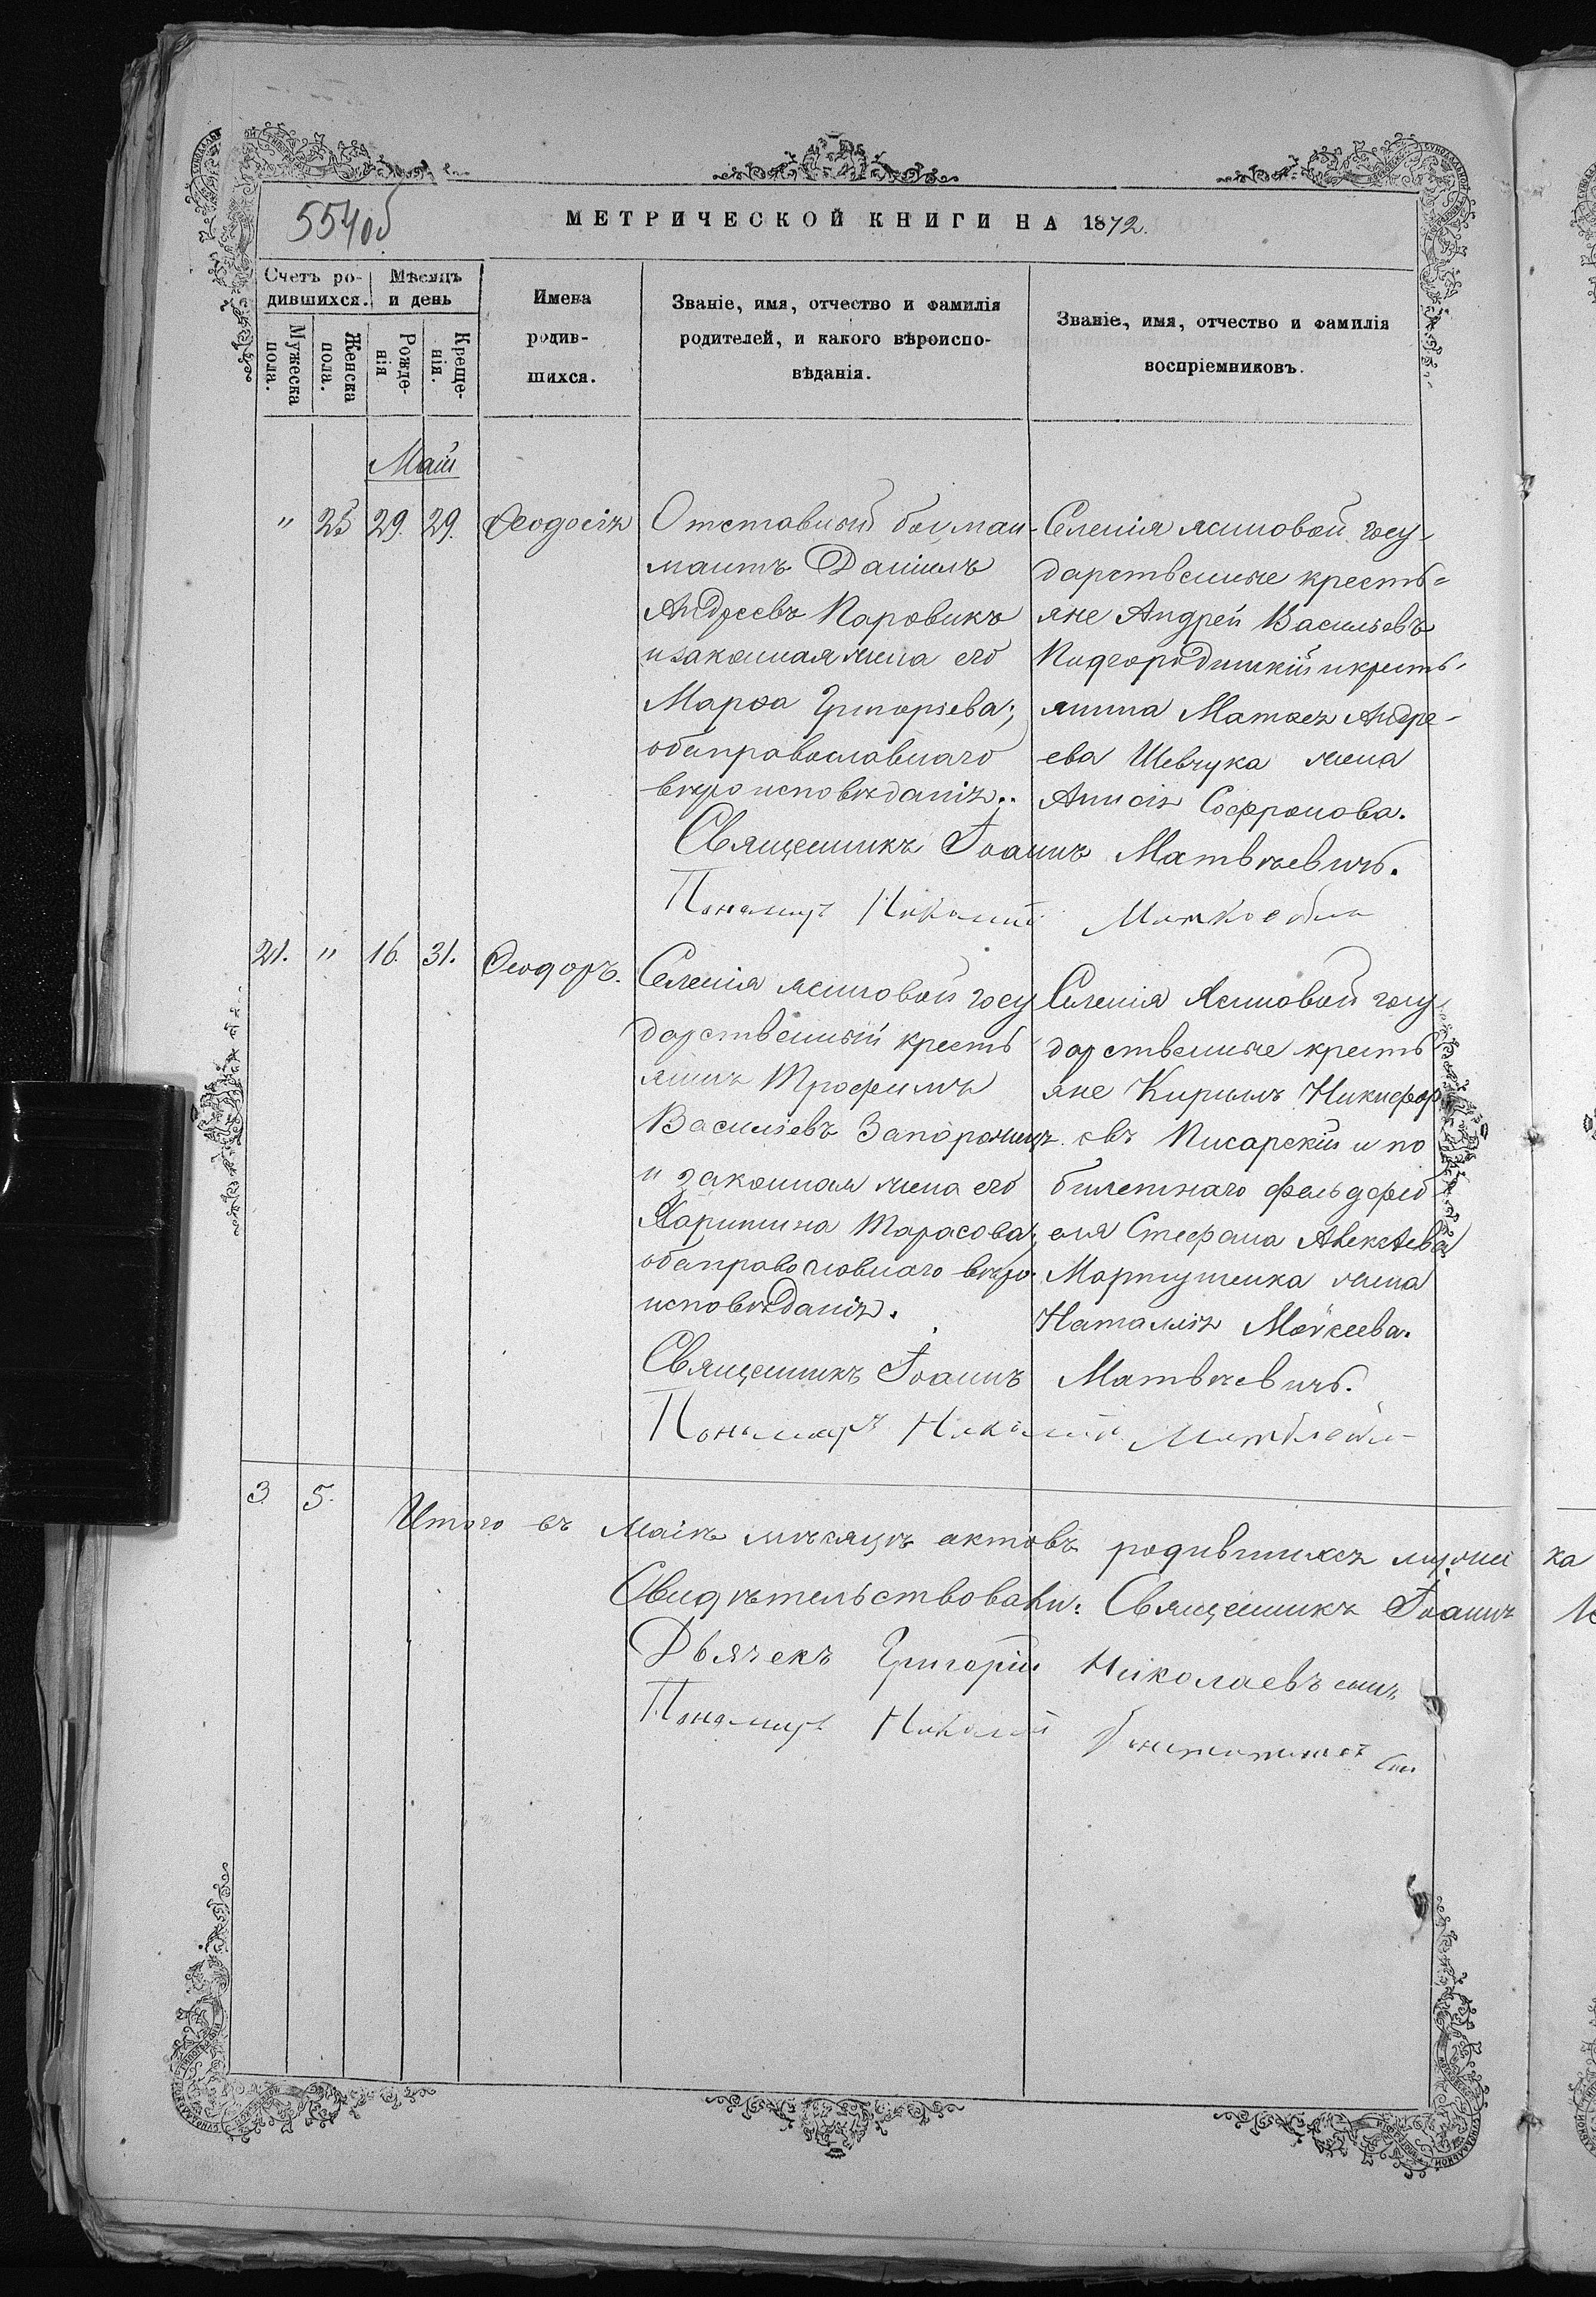 554об
МЕТРИЧЕСКОЙ КНИГИ НА 1872.
Счетъ родившихся.
Мѣсяцъ и день
Мужеска пола.
Женска пола.
Рожденія
Крещенія.
Имена
родив-
шихся.
Званіе, имя, отчество и фамилія
родителей, и какого вѣроиспо-
вѣданія.
Званіе, имя, отчество и фамилія
воспріемниковъ.
Май
" 25 29. 29. Ѳеодосія
Отставный боцман-
маитъ Даніилъ
Андреевъ Паровикъ
и законная жена его
Марѳа Григоріева;
оба православнаго
вѣроисповѣданія..
Селенія Ясиновой госу-
дарственные кресть=
яне Андрей Васильевъ
Подгородинскій и кресть-
янина Матѳея Андре-
ева Шевчука жена
Анисія Софронова.
Священникъ Іоаннъ Матвѣевичъ.
Пономарь Николай
21. " 16. 31. Ѳеодоръ.
Селенія Ясиновой госу
дарственный кресть
янинъ Трофимъ
Васильевъ Запорожецъ
и законная жена его
Харитина Тарасова;
оба православнаго вѣро-
исповѣданія.
Селенія Ясиновой госу
дарственные кресть
яне Кирилъ Никифор
овъ Писарскій и по
билетнаго фельдфеб
еля Стефана Алексѣева
Мартыненка жена
Наталія Моѵсеева.
Священникъ Іоаннъ Матвѣевичъ.
Пономарь Николай
3 5. Итого въ Маѣ мѣсяцѣ актовъ родившихся
Свидѣтельствовали: Священникъ Іоаннъ
Дьячекъ Григорій Николаевъ
Пономарь Николай